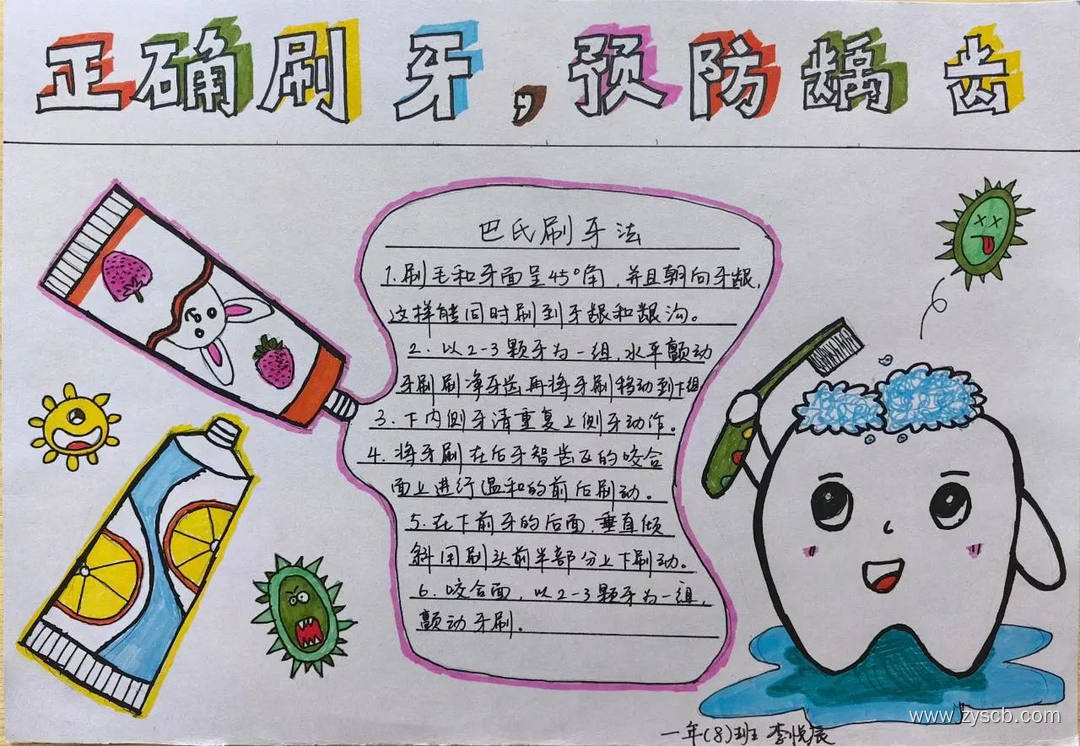 正确刷牙,预防龋齿
巴氏刷牙法
1.刷毛和牙面呈45°角,并且朝向牙龈,
这样能同时刷到牙龈和龈沟。
2.以2-3颗牙为一组,水平颤动
牙刷刷净牙齿,再将牙刷移动到下组
3.下内侧牙清重复上侧牙动作。
4.将牙刷在后牙智齿区的咬合
面上进行温和的前后刷动。
5.在下前牙的后面,垂直倾
斜用刷头前半部分上下刷动。
6.咬合面,以2-3颗牙为一组,
颤动牙刷。
一年(8)班 李悦辰
www.zyscb.com